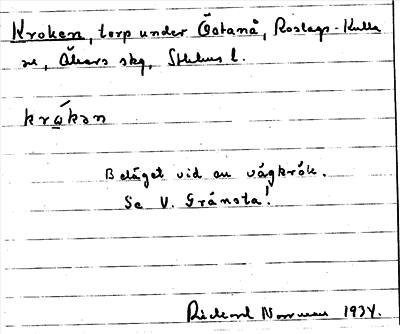 Kroken, torp under Östanå, Roslags-Kulla
sn, Åkers skg, Sthlms l.
krώkən
Beläget vid en vägkrök.
Se V. Gränsta!
Rickard Norrman 1934.